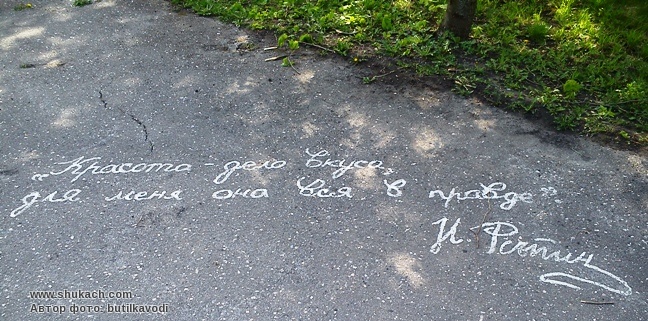 „Красота - дело вкуса,
для меня она вся в правде".
И. Репин
www.shukach.com
Автор фото: butilkavodi